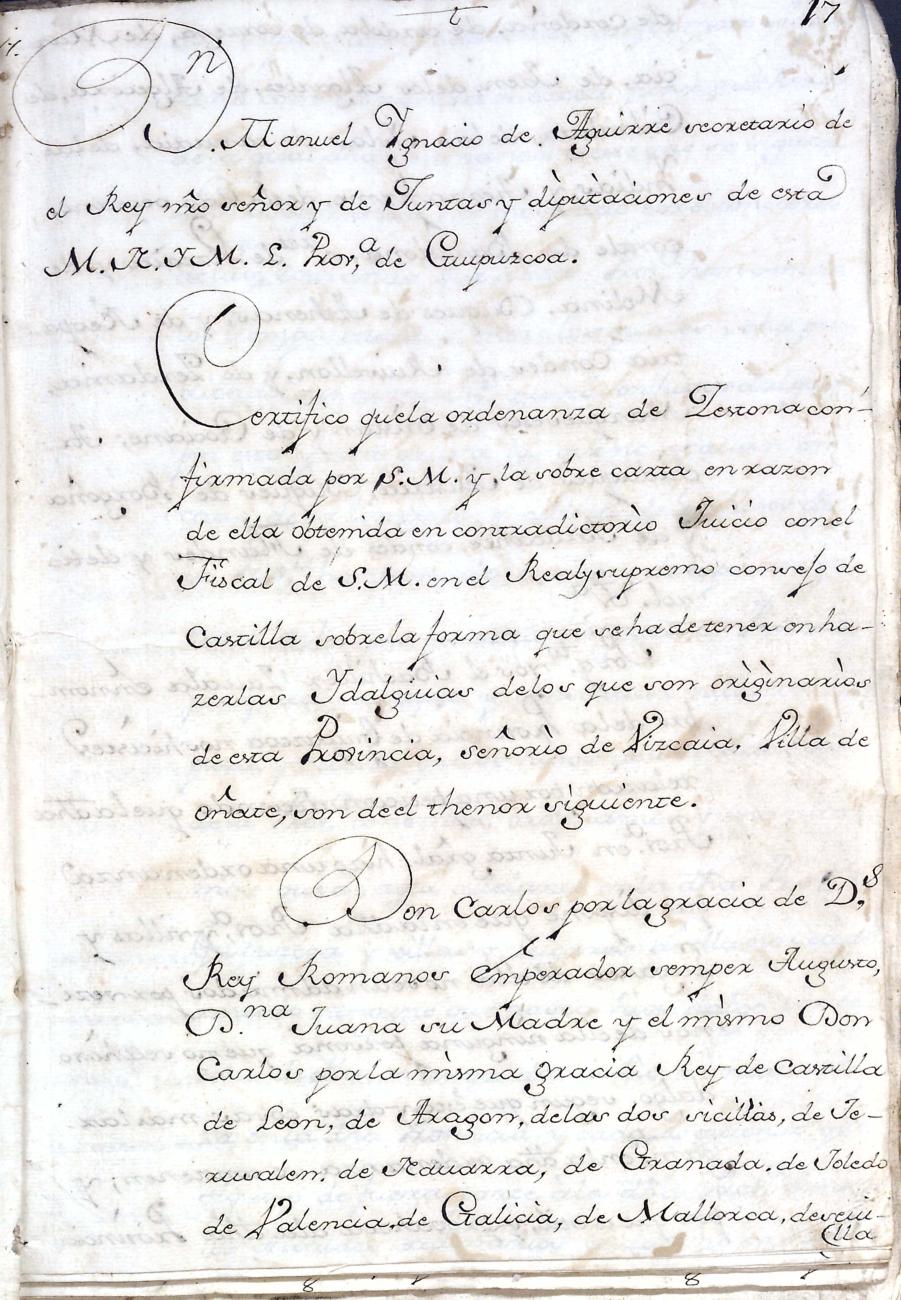 17
Dn
Manuel Ygnacio de Aguirre secretario de
el Rey nr̃o señor y de Juntas y diputaciones de esta
M. N. Y M. L. Prov,ª de Guipuzcoa.
Certifico quela ordenanza de Zestona con-
firmada por S.M. y la sobre carta en razon
de ella obtenida en contradictorio Juicio conel
Fiscal de S.M. en el Real y supremo consejo de
Castilla sobrela forma que seha de tener en ha-
zerlas Ydalguias delos que son originarios
de esta Provincia, señorio de Vizcaia, Villa de
oñate, son de el thenor siguiente.
Don Carlos por la gracia de D,s
Rey Romanos Emperador semper Augusto,
D.na Juana su Madre y el mismo Don
Carlos por la misma gracia Rey de Castilla
de Leon, de Aragon, delas dos sicilias, de Je-
rusalen. de Navarra, de Granada. de Toledo
de Valencia, de Galicia, de Mallorca, de sevi-
lla